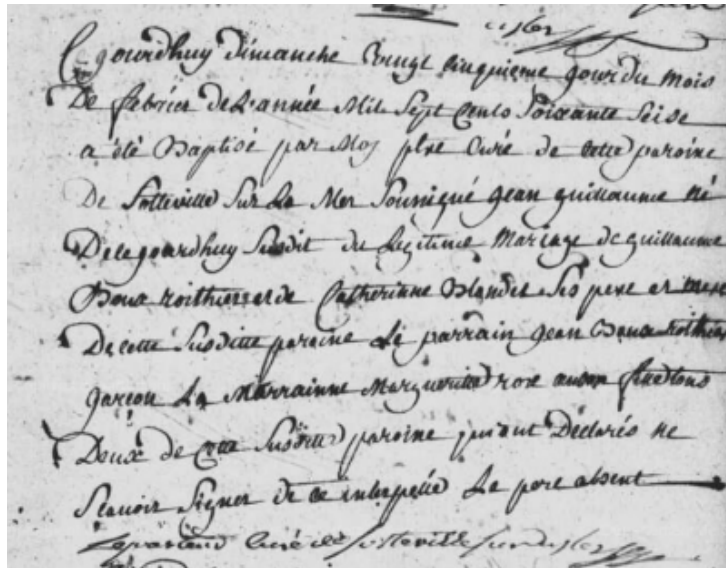 Cejourdhuy dimanche Vingt Cinquieme jour du mois
De febvrier de L'année Mil Sept Cents Soixante Seise
a été Baptisé par Moy ptre Curé de cette paroise
De Sotteville Sur La Mer Soussigné jean guillaume né
De ce jourdhuy Susdit du Legitime Mariage de guillaume
et de Catherinne Blondel Ses pere et mere
De cette Susditte paroise Le parrain jean
garcon La Marrainne Margueritte rose fille tous
Deux de Cette Susditte paroise qui ont Déclarés ne
Scavoir Signer de ce interpellé Le pere absent
curé de Sotteville sur